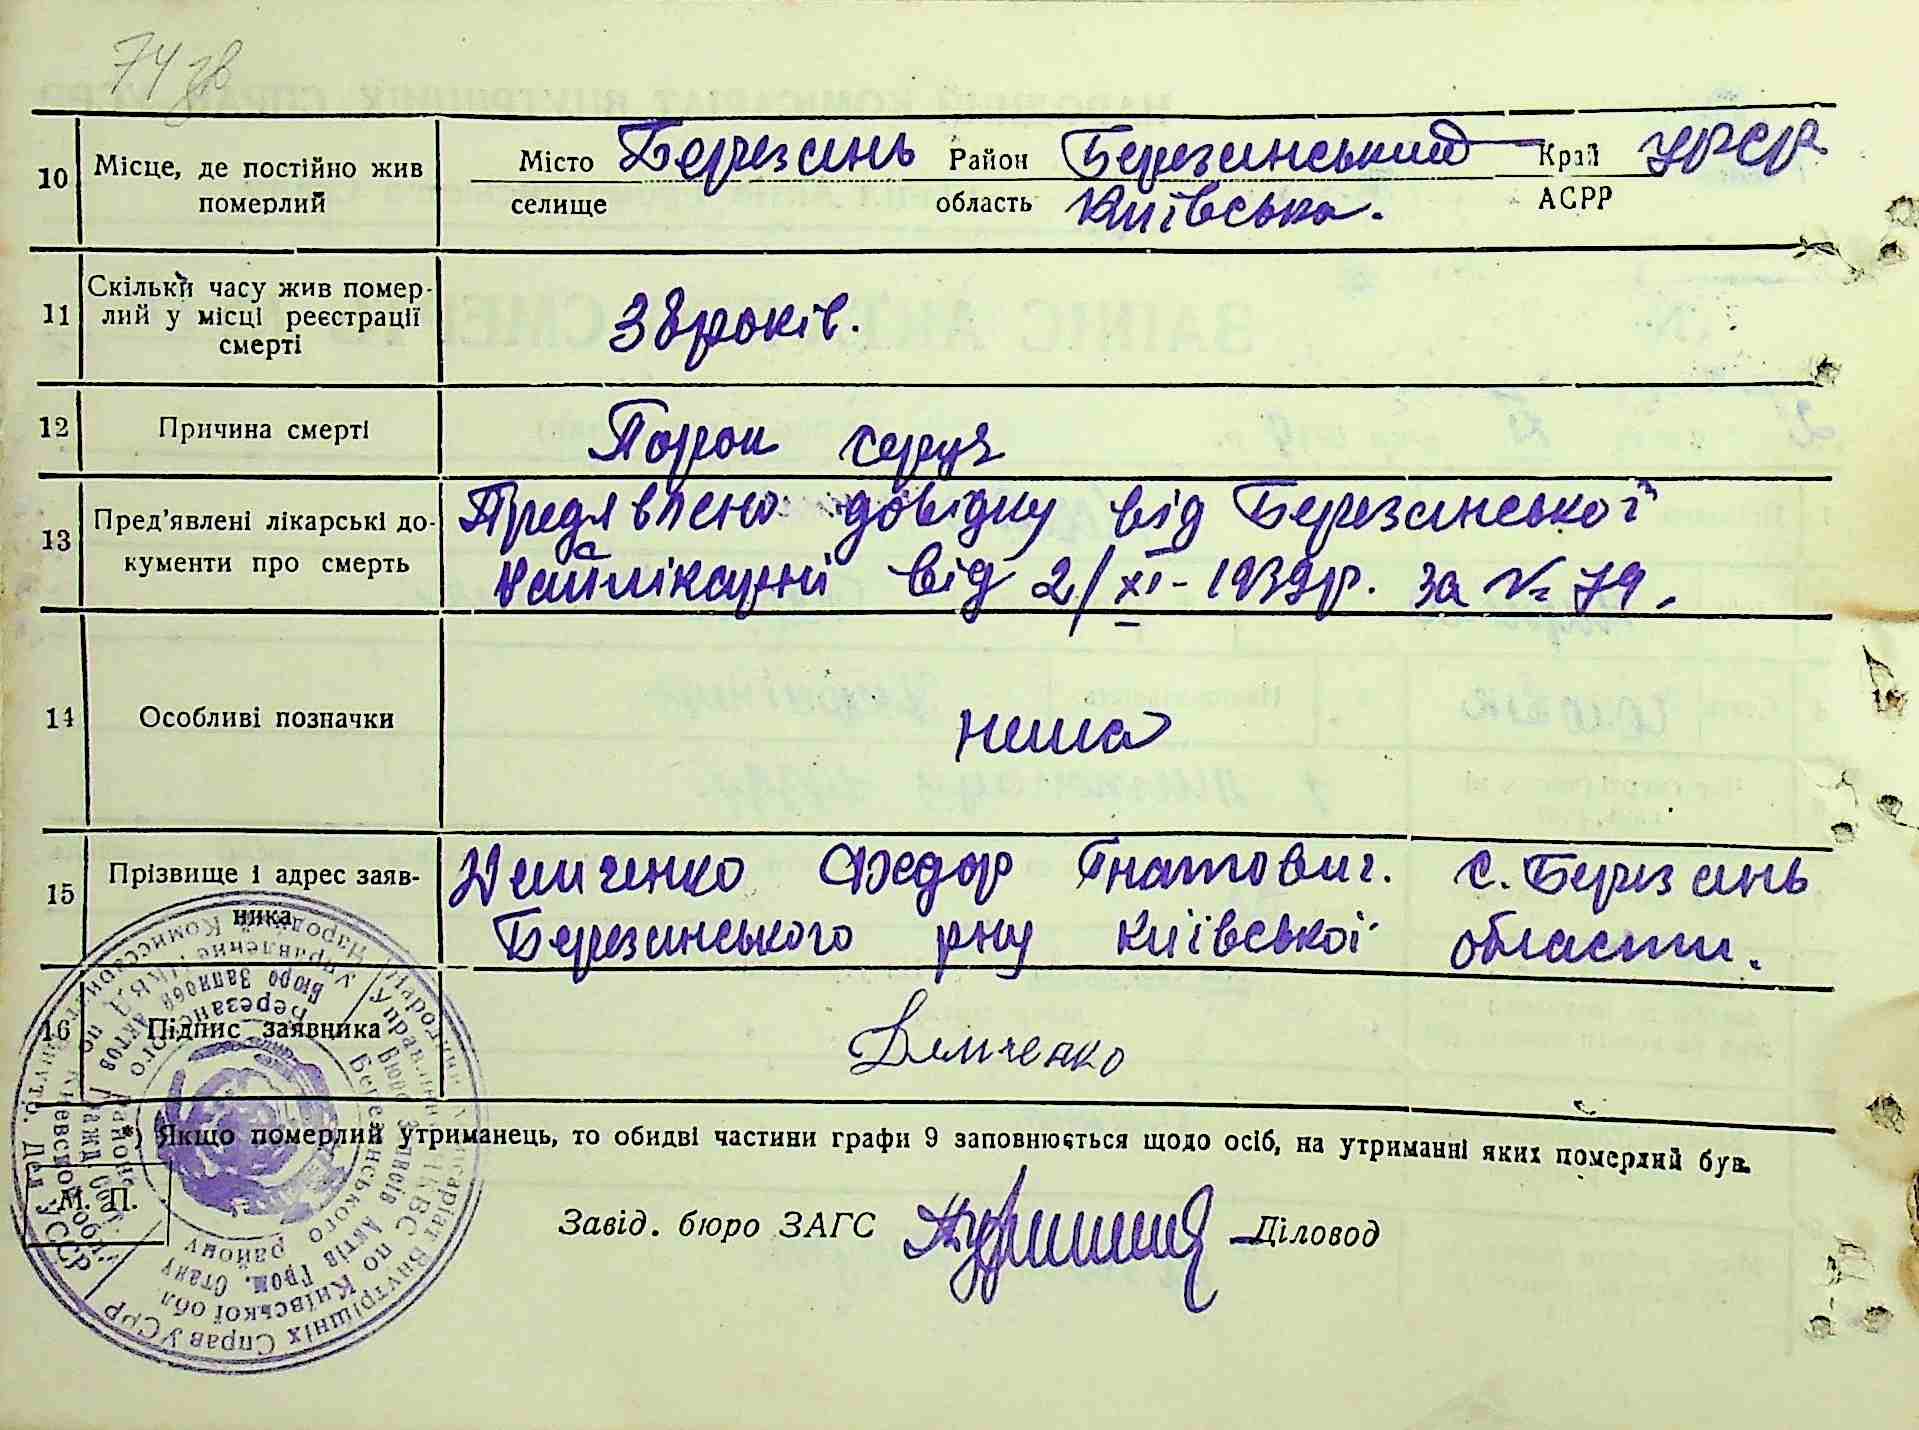 74 зв
10 Місце, де постійно жив померлий Місто Березань Район Березанський Край УРСР
селище область Київська. АСРР
11 Скільки часу жив помер-
лий у місці реєстрації
смерті
38 років.
12 Причина смерті Порок серця
13 Пред'явлені лікарські до-
кументи про смерть
Предявлено довідку від Березанської
райлікарні від 2/XI-1939р. за № 79.
14 Особливі позначки нема
15 Прізвище і адрес заяв-
ника
Демченко Федор Гнатович. с. Березань
Березанського рну Київської области.
16 Підпис заявника Демченко
*) Якщо померлий утриманець, то обидві частини графи 9 заповнюється щодо осіб, на утриманні яких померлий був.
М. П.
Завід. бюро ЗАГС Діловод
Народний Комісаріат Внутрішніх Справ УСРР
Управління НКВС по Київської обл.
Бюро Записів Актів Гром. Стану
Березанського району